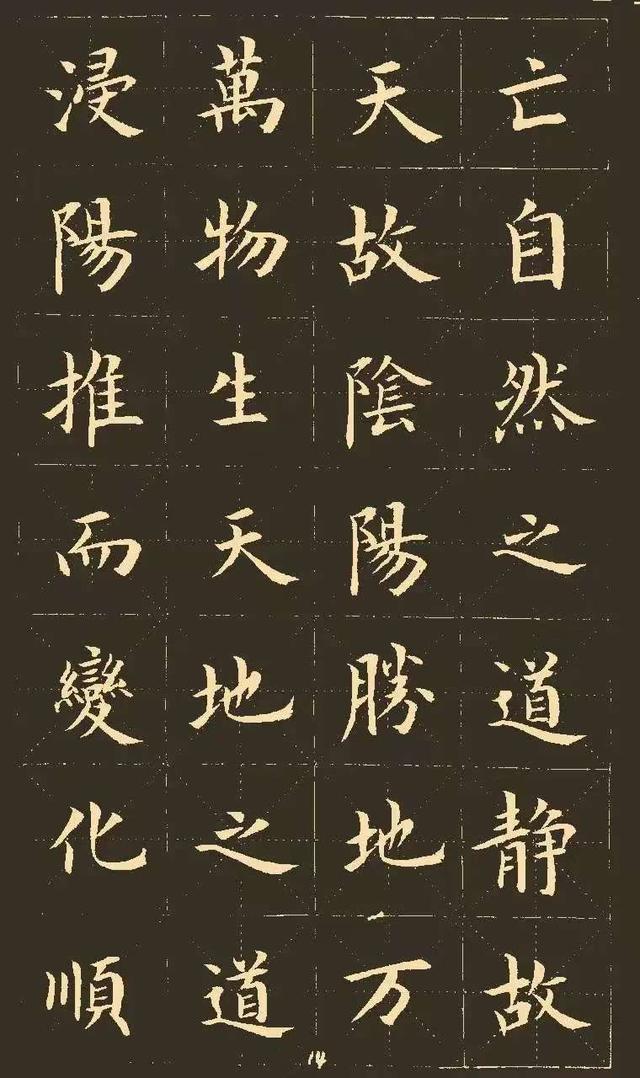 亡自然之道静故
天故陰陽勝地万
萬物生天地之道
浸陽推而變化順
14